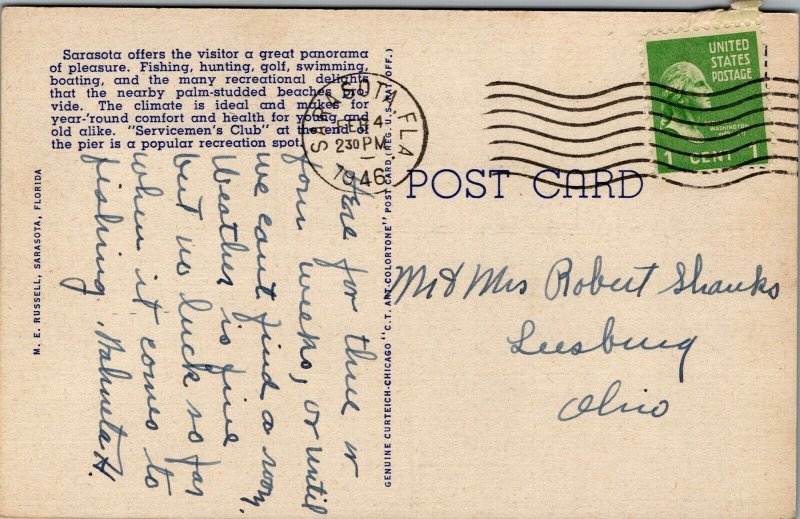 Sarasota offers the visitor a great panorama
of pleasure. Fishing, hunting, golf, swimming,
boating, and the many recreational delights
that the nearby palm-studded beaches pro-
vide. The climate is ideal and makes for
year-'round comfort and health for young and
old alike. "Servicemen's Club" at the end of
the pier is a popular recreation spot.
M. E. RUSSELL, SARASOTA, FLORIDA
Here for three or
four weeks, or until
we cant find a room.
Weather is fine
but no luck so far
when it comes to
fishing. H.
GENUINE CURTEICH-CHICAGO "C.T. ART-COLORTONE" POST CARD (REG. U.S. PAT. OFF.)
SARASOTA, FLA.
FEB 4
2 30 PM
1946
UNITED
STATES
POSTAGE
WASHINGTON
1 CENT 1
POST CARD
Mr & Mrs Robert Shanks
Leesburg
Ohio